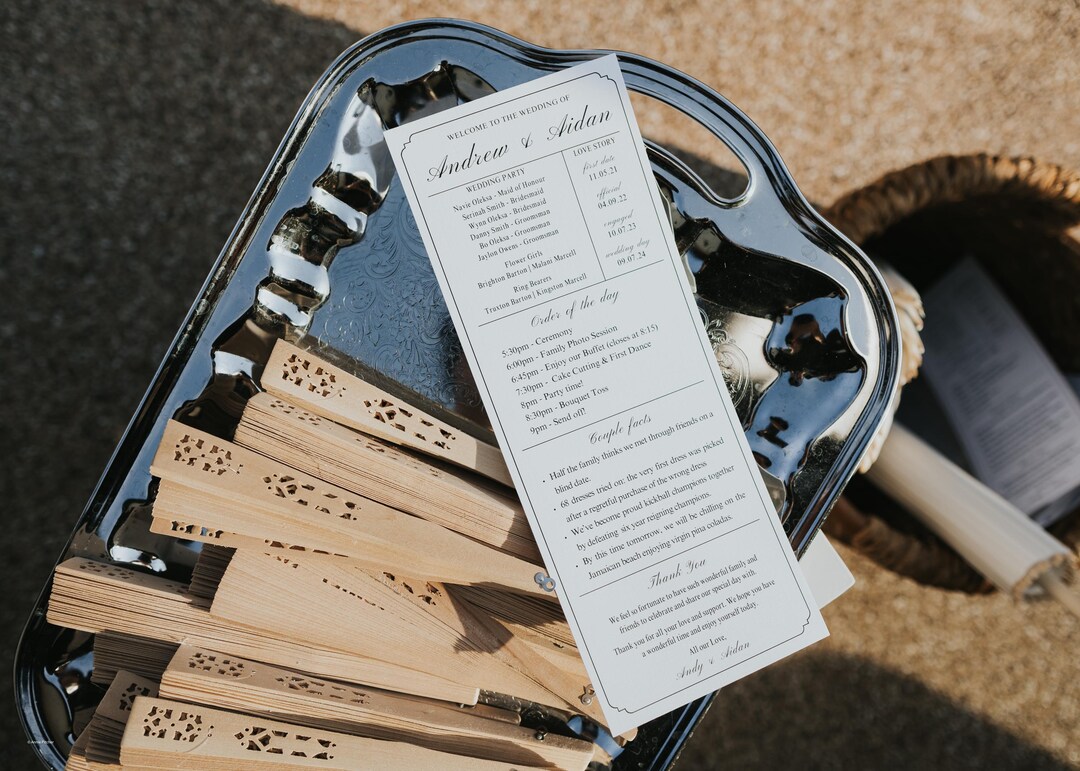 WELCOME TO THE WEDDING OF
Andrew & Aidan
WEDDING PARTY
Navie Oleksa - Maid of Honour
Serinah Smith - Bridesmaid
Wynn Oleksa - Bridesmaid
Danny Smith - Groomsman
Bo Oleksa - Groomsman
Jaylon Owens - Groomsman
Flower Girls
Brighton Barton | Malani Marcell
Ring Bearers
Truxton Barton | Kingston Marcell
LOVE STORY
first date
11.05.21
official
04.09.22
engaged
10.07.23
wedding day
09.07.24
Order of the day
5:30pm - Ceremony
6:00pm - Family Photo Session
6:45pm - Enjoy our Buffet (closes at 8:15)
7:30pm - Cake Cutting & First Dance
8pm - Party time!
8:30pm - Bouquet Toss
9pm - Send off!
Couple facts
• Half the family thinks we met through friends on a
blind date.
• 68 dresses tried on: the very first dress was picked
after a regretful purchase of the wrong dress
• We've become proud kickball champions together
by defeating six year reigning champions.
• By this time tomorrow, we will be chilling on the
Jamaican beach enjoying virgin pina coladas.
Thank You
We feel so fortunate to have such wonderful family and
friends to celebrate and share our special day with.
Thank you for all your love and support. We hope you have
a wonderful time and enjoy yourself today.
All our Love,
Andy & Aidan